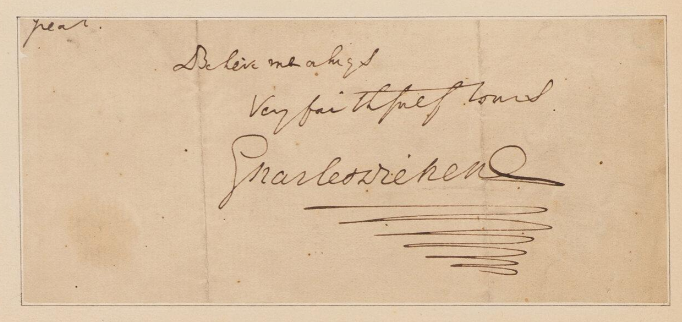 year.
Believe me always
Very faithfully Yours
Charles Dickens